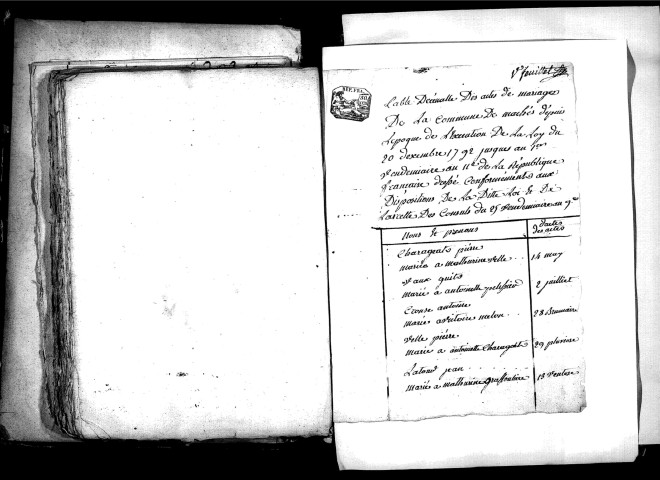 1er feuillet
REP. FRA.
Table Décenalle Des actes de mariages
De La Commune De machés depuis
Lepoque de Lexecution De La Loy du
20 decembre 1792 jusques au 1er
Vendemiaire an 11e de la République
francaise dressé Conformements aux
Dispositions De La Ditte Loi & De
Larrette Des Consuls du 25 vendemiaire an 9me
Noms & prenoms
Dattes des actes
Charageats pierre
mariés a mathurine velle
14 may
Vaux
marié a antoinette
2 juillet
antoine
marié a victoire melon
28 Brumaire
velle pierre
marié a antoinette Charageats
29 pluviose
Latour jean
mariés a mathurine
13 Ventose